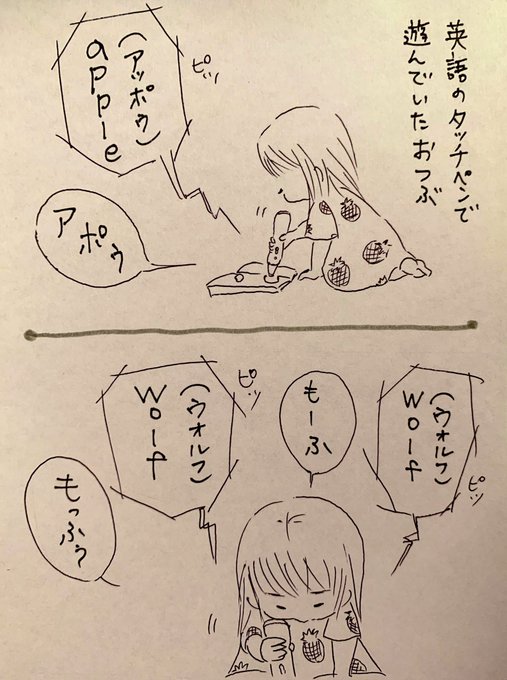 英語のタッチペンで
遊んでいたおつぶ
ピッ
(アッポゥ)
apple
アポゥ
ピッ
(ウォルフ)
wolf
もーふ
ピッ
(ウォルフ)
wolf
もっふぅ